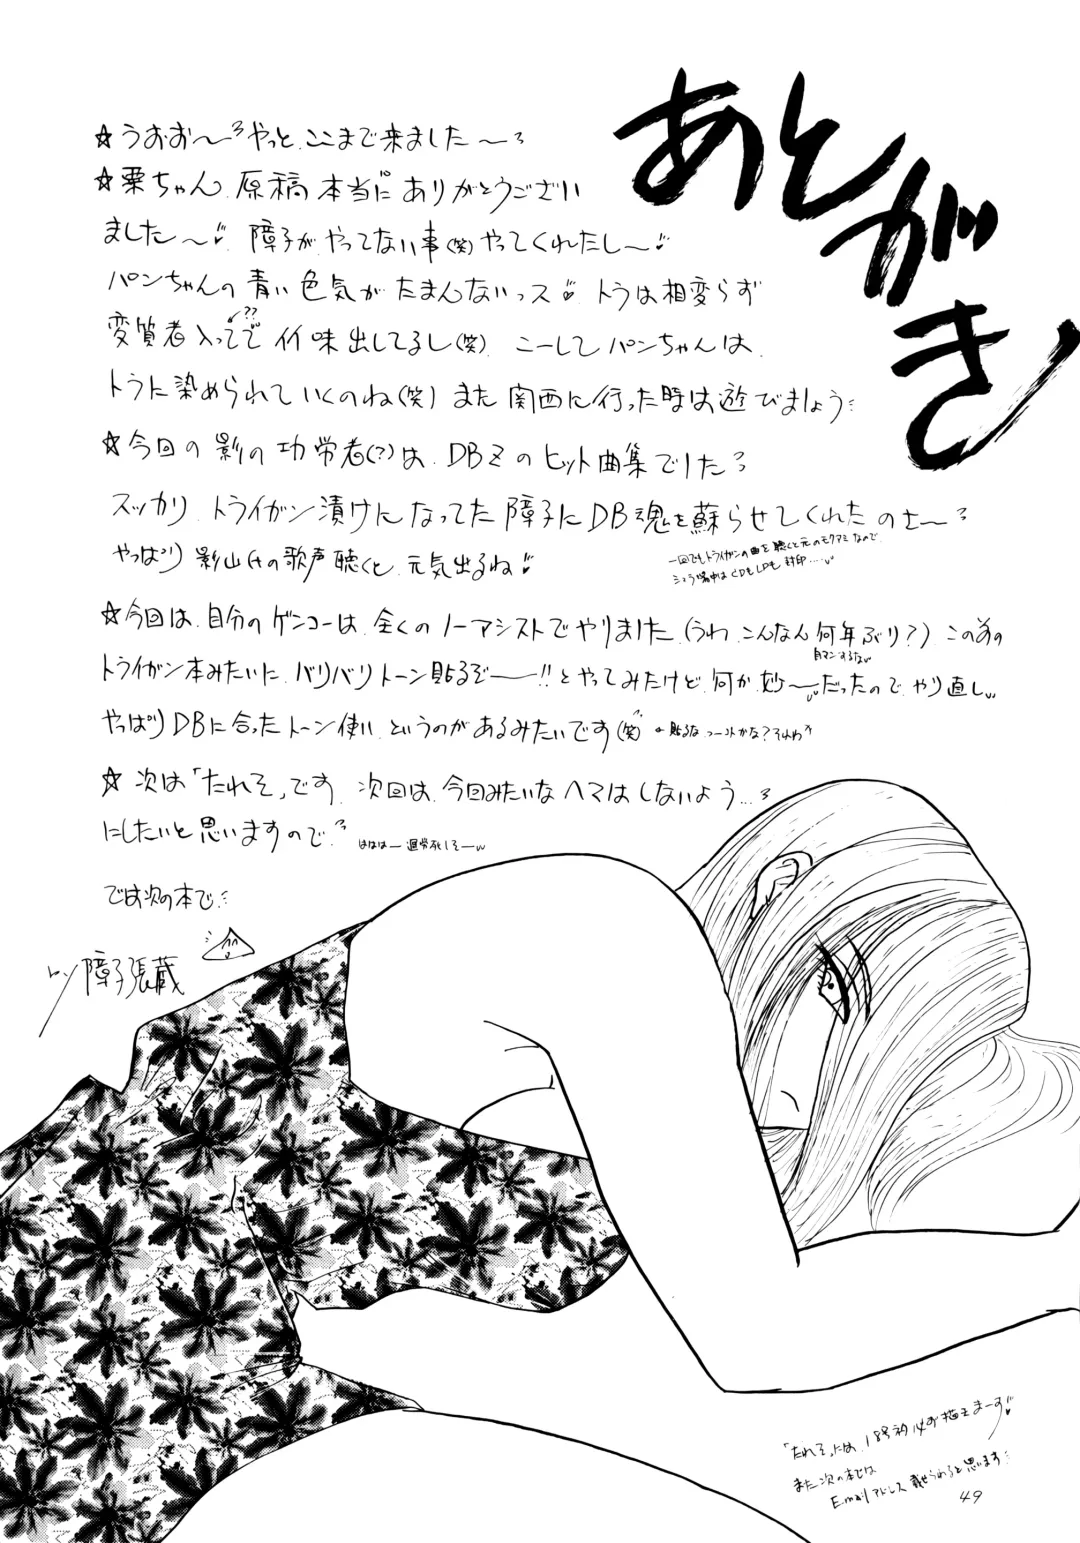 あとがき
☆うおお〜やっと、ここまで来ました〜
☆粟ちゃん、原稿本当にありがとうござい
ました〜♡ 障子がやってない事(笑)やってくれたし〜♡
パンちゃんの青い色気がたまんないっス♡ トラは相変らず
変質者入ってて゛イイ味出してるし(笑) こーしてパンちゃんは
??
トラに染められていくのね(笑) また関西に行った時は遊びましょう
☆今回の影の功労者(?)は、DBZのヒット曲集でした
スッカリ、トライガン漬けになってた障子にDB魂を蘇らせてくれたのさ〜
やっぱり影山さんの歌声聴くと、元気出るね♡
一回でもトライガンの曲を聴くと元のモクアミなので、
シュラ場中はCDもLDも封印……
☆今回は、自分のゲンコーは、全くのノーアシストでやりました(うわ、こんなん何年ぶり?) この前の
自マンするな
トライガン本みたいに、バリバリトーン貼るぞ──!!とやってみたけど、何か妙〜だったので、やり直し
やっぱりDBに合ったトーン使い、というのがあるみたいです(笑)
☆次は「たれそ」です。次回は、今回みたいなヘマはしないよう…
にしたいと思いますので
ははは— 過労死しそー
では次の本で
障子張蔵
「たれそ」には、18号初め
描きまーす♡
また次の本では
Emailアドレス載せられると思います
49